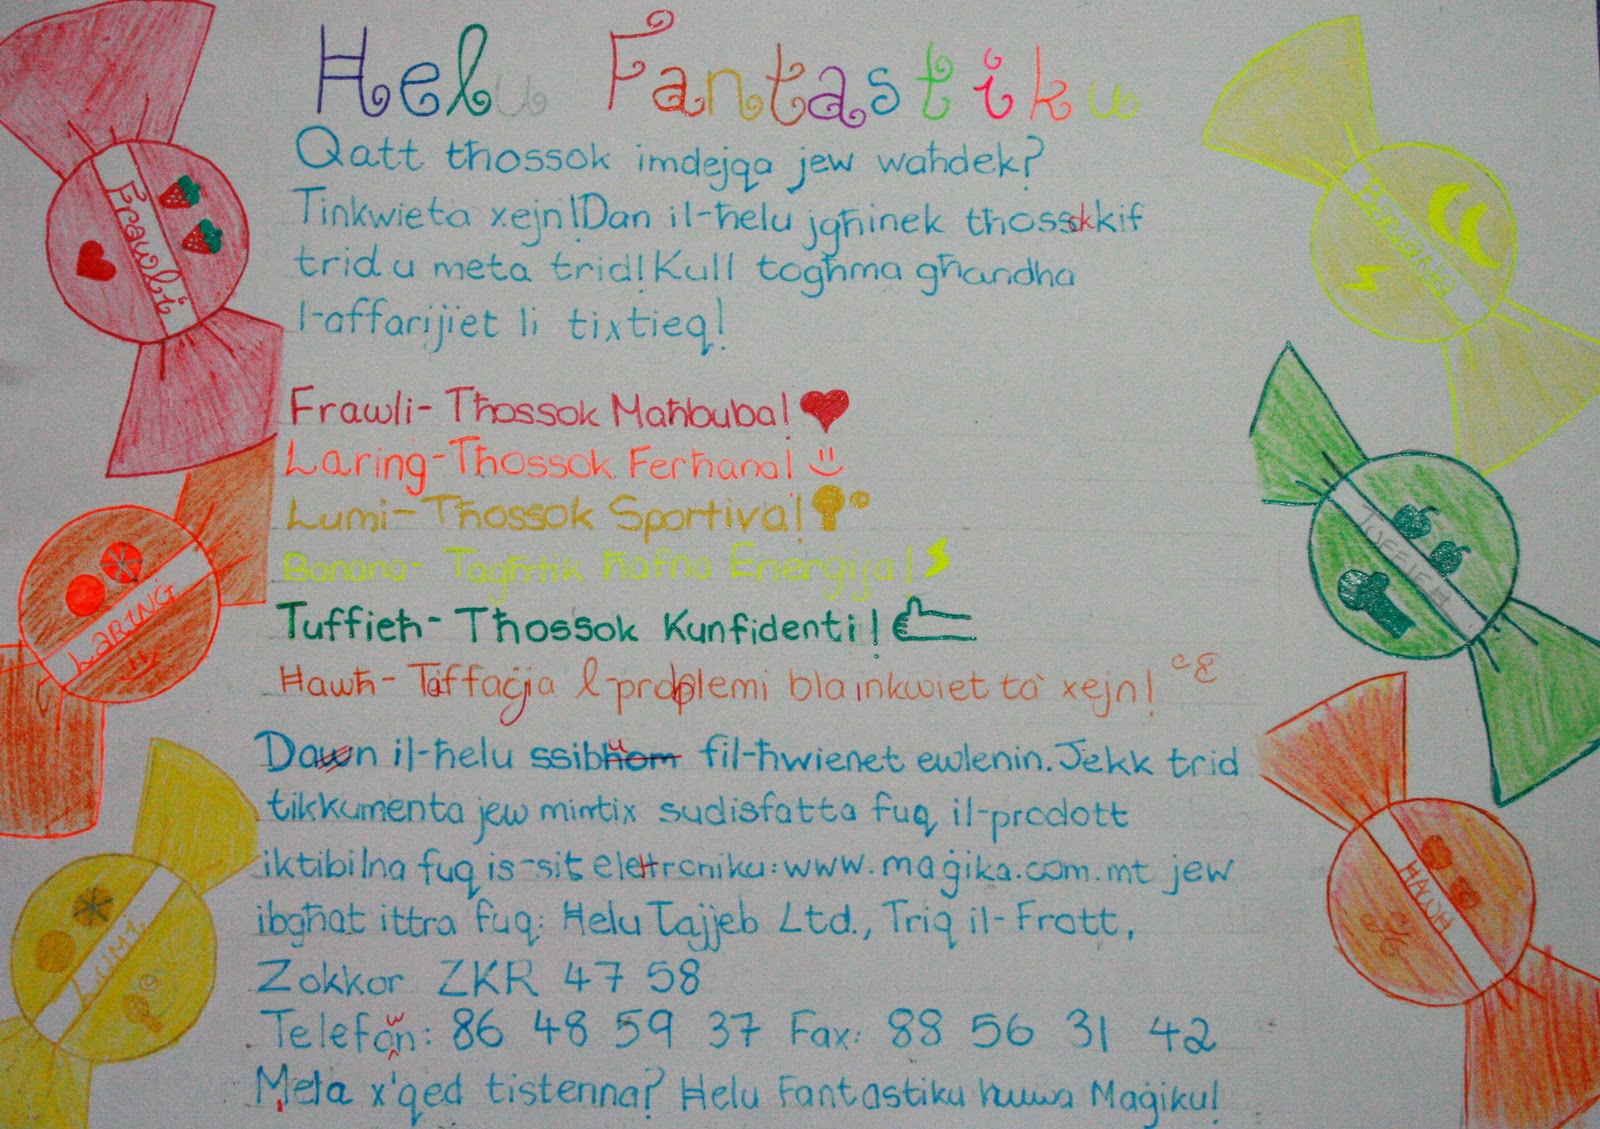 Helu Fantastiku
Qatt tħossok imdejqa jew waħdek?
Tinkwieta xejn! Dan il-ħelu jgħinek tħossok kif
trid u meta trid! Kull togħma għandha
l-affarijiet li tixtieq!
Frawli - Tħossok Maħbuba!
Laring - Tħossok Ferħana!
Lumi - Tħossok Sportiva!
Banana - Tagħtik ħafna Energija!
Tuffieħ - Tħossok Kunfidenti!
Hawħ - Taffaċja l-problemi bla inkwiet ta' xejn!
Dan il-ħelu ssibu fil-ħwienet ewlenin. Jekk trid
tikkumenta jew mintix sudisfatta fuq il-prodott
iktibilna fuq is-sit elettroniku: www.maġika.com.mt jew
ibgħat ittra fuq: Helu Tajjeb Ltd., Triq il-Frott,
Zokkor ZKR 47 58
Telefown: 86 48 59 37 Fax: 88 56 31 42
Mela x'qed tistenna? Helu Fantastiku huwa Maġiku!
Frawli
LARING
LUMI
Banana
TUFFIEH
HAWH